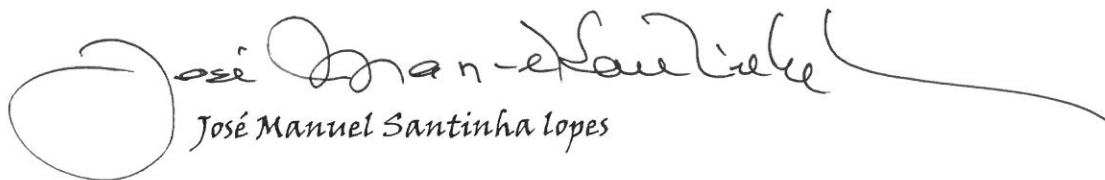 José Manuel Santinha
José Manuel Santinha lopes